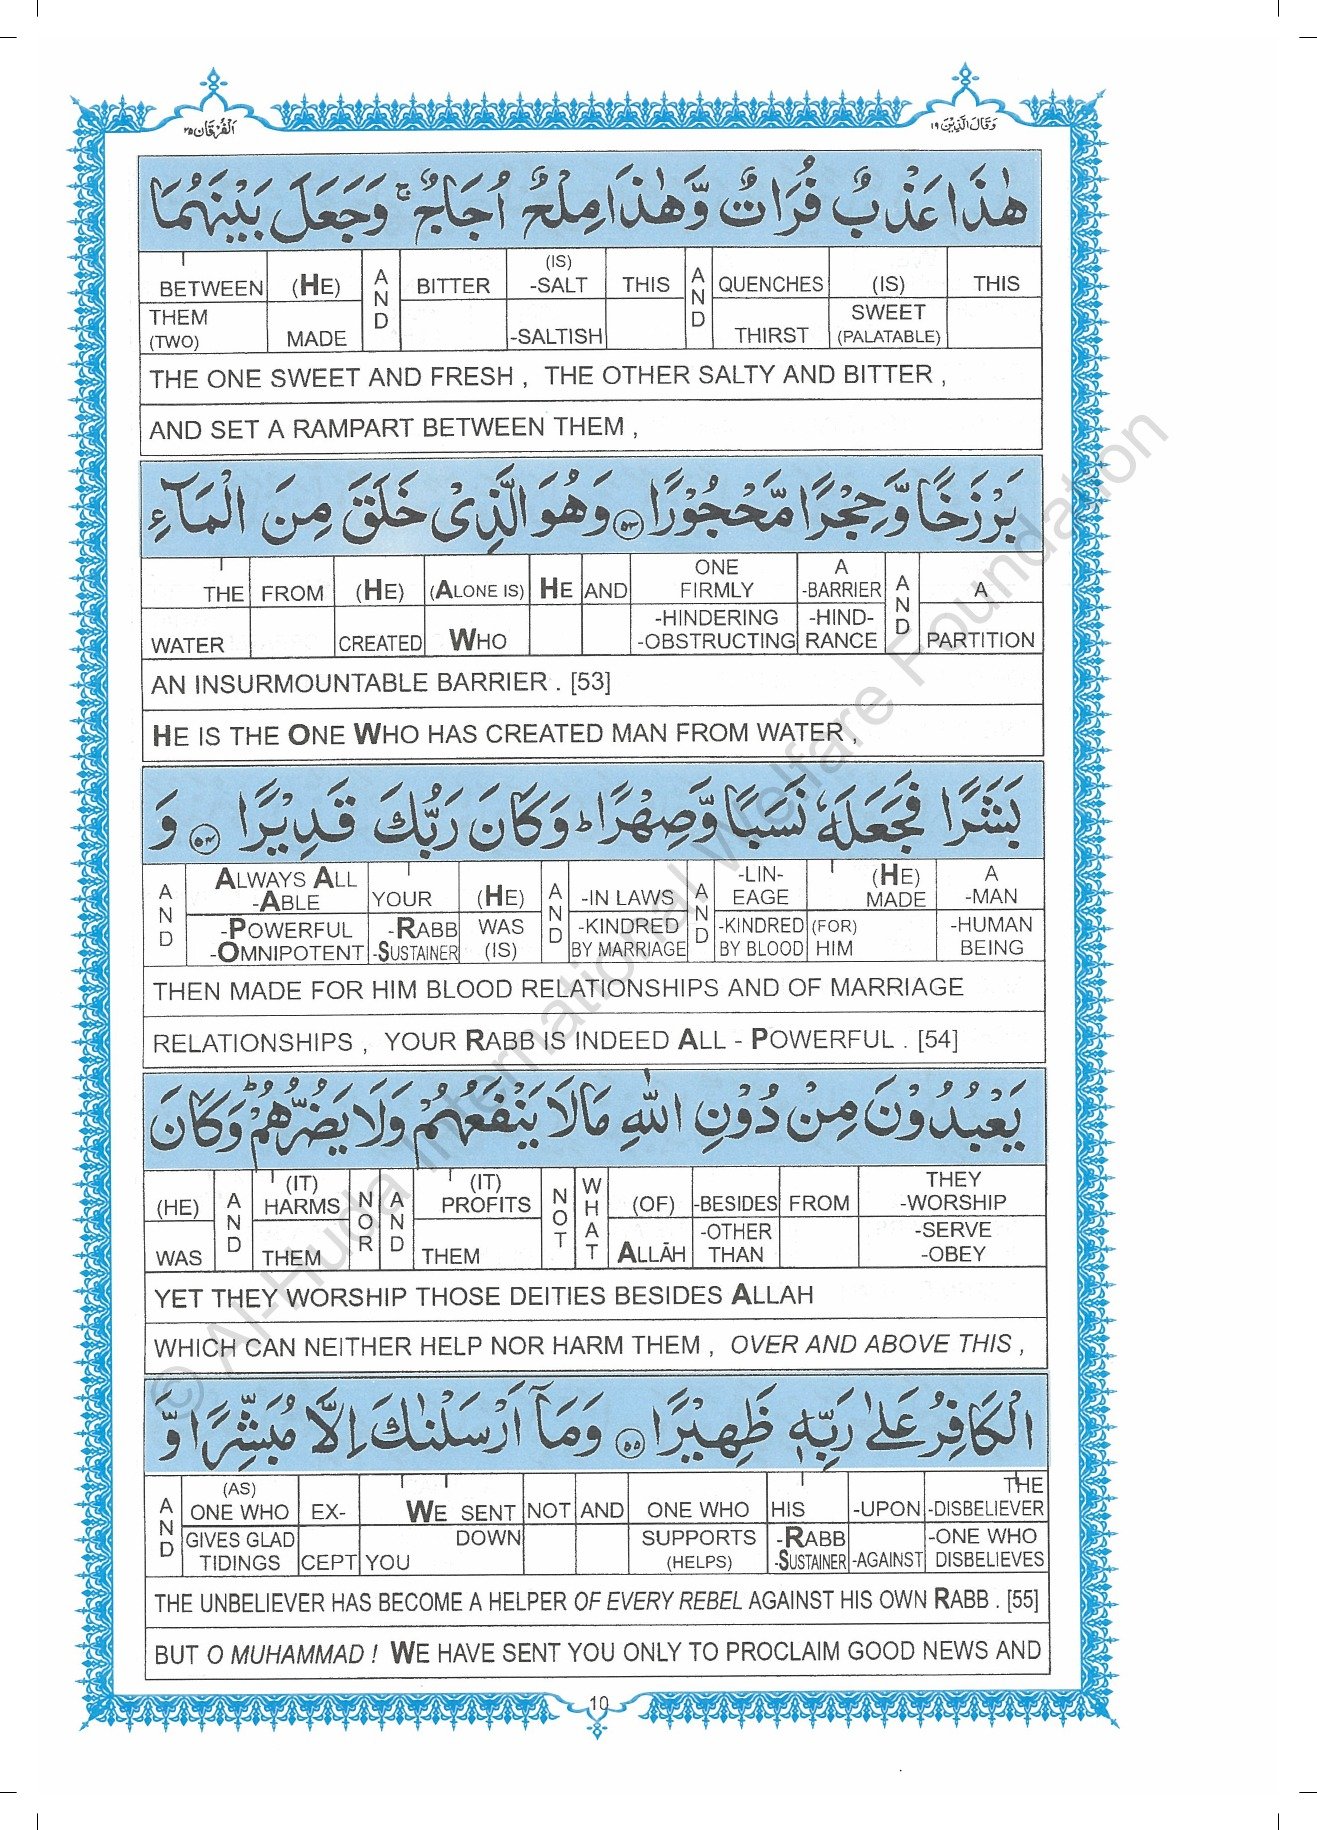 وَقَالَ الَّذِيْنَ ١٩
اَلْفُرْقَان ٢٥
هٰذَا عَذْبٌ فُرَاتٌ وَّهٰذَا مِلْحٌ اُجَاجٌ ۚ وَجَعَلَ بَيْنَهُمَا
BETWEEN (HE) AND BITTER (IS) -SALT THIS AND QUENCHES (IS) THIS
THEM (TWO) MADE -SALTISH THIRST SWEET (PALATABLE)
THE ONE SWEET AND FRESH , THE OTHER SALTY AND BITTER ,
AND SET A RAMPART BETWEEN THEM ,
بَرْزَخًا وَّحِجْرًا مَّحْجُوْرًا ۝٥٣ وَهُوَ الَّذِىْ خَلَقَ مِنَ الْمَآءِ
THE FROM (HE) (ALONE IS) HE AND ONE FIRMLY A -BARRIER AND A
WATER CREATED WHO -HINDERING -OBSTRUCTING -HIND- RANCE PARTITION
AN INSURMOUNTABLE BARRIER . [53]
HE IS THE ONE WHO HAS CREATED MAN FROM WATER ,
بَشَرًا فَجَعَلَهٗ نَسَبًا وَّصِهْرًا ؕ وَكَانَ رَبُّكَ قَدِيْرًا ۝٥٤ وَ
AND ALWAYS ALL -ABLE YOUR (HE) AND -IN LAWS AND -LIN- EAGE (HE) MADE A -MAN
-POWERFUL -OMNIPOTENT -RABB -SUSTAINER WAS (IS) -KINDRED BY MARRIAGE -KINDRED BY BLOOD (FOR) HIM -HUMAN BEING
THEN MADE FOR HIM BLOOD RELATIONSHIPS AND OF MARRIAGE
RELATIONSHIPS , YOUR RABB IS INDEED ALL - POWERFUL . [54]
يَعْبُدُوْنَ مِنْ دُوْنِ اللّٰهِ مَالَا يَنْفَعُهُمْ وَلَا يَضُرُّهُمْ ؕ وَكَانَ
(HE) AND (IT) HARMS NOR AND (IT) PROFITS NOT WHAT (OF) -BESIDES FROM THEY -WORSHIP
WAS THEM THEM ALLĀH -OTHER THAN -SERVE -OBEY
YET THEY WORSHIP THOSE DEITIES BESIDES ALLAH
WHICH CAN NEITHER HELP NOR HARM THEM , OVER AND ABOVE THIS ,
الْكَافِرُ عَلٰى رَبِّهٖ ظَهِيْرًا ۝٥٥ وَمَآ اَرْسَلْنٰكَ اِلَّا مُبَشِّرًا وَّ
AND (AS) ONE WHO EX- WE SENT NOT AND ONE WHO HIS -UPON THE -DISBELIEVER
GIVES GLAD TIDINGS CEPT YOU DOWN SUPPORTS (HELPS) -RABB -SUSTAINER -AGAINST -ONE WHO DISBELIEVES
THE UNBELIEVER HAS BECOME A HELPER OF EVERY REBEL AGAINST HIS OWN RABB . [55]
BUT O MUHAMMAD ! WE HAVE SENT YOU ONLY TO PROCLAIM GOOD NEWS AND
10
© Al-Huda International Welfare Foundation